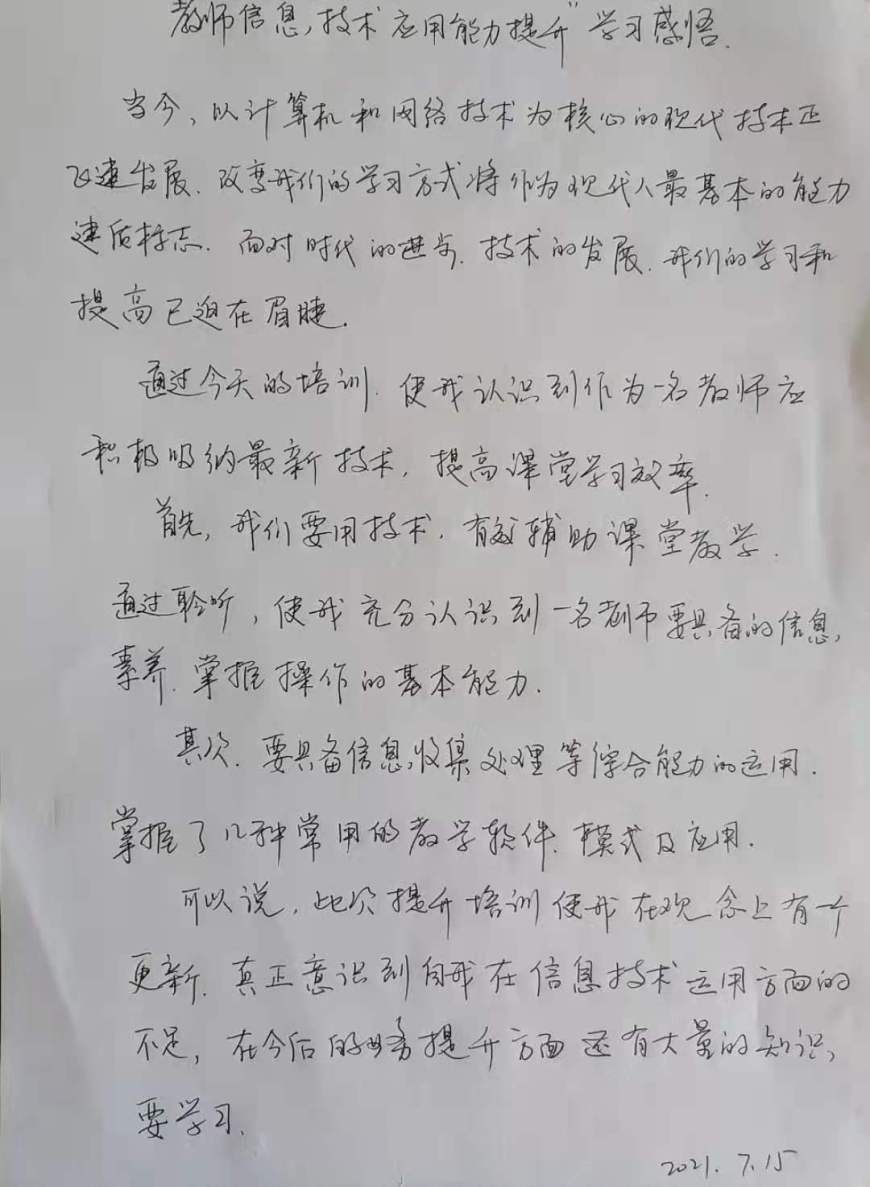 教师信息技术应用能力提升”学习感悟.
当今、以计算机和网络技术为核心的现代技术正
飞速发展.改变我们的学习方式将作为现代人最基本的能力
建后标志.面对时代的进步.技术的发展.我们的学习和
提高已迫在眉睫.
通过今天的培训.使我认识到作为一名教师应
积极吸纳最新技术,提高课堂学习效率.
首先,我们要用技术.有效辅助课堂教学.
通过聆听,使我充分认识到一名教师要具备的信息
素养.掌握操作的基本能力.
其次.要具备信息收集处理等综合能力的运用.
掌握了几种常用的教学软件.模式及应用.
可以说,此次提升培训使我在观念上有一个
更新.真正意识到自我在信息技术运用方面的
不足,在今后的业务提升方面还有大量的知识
要学习.
2021.7.15